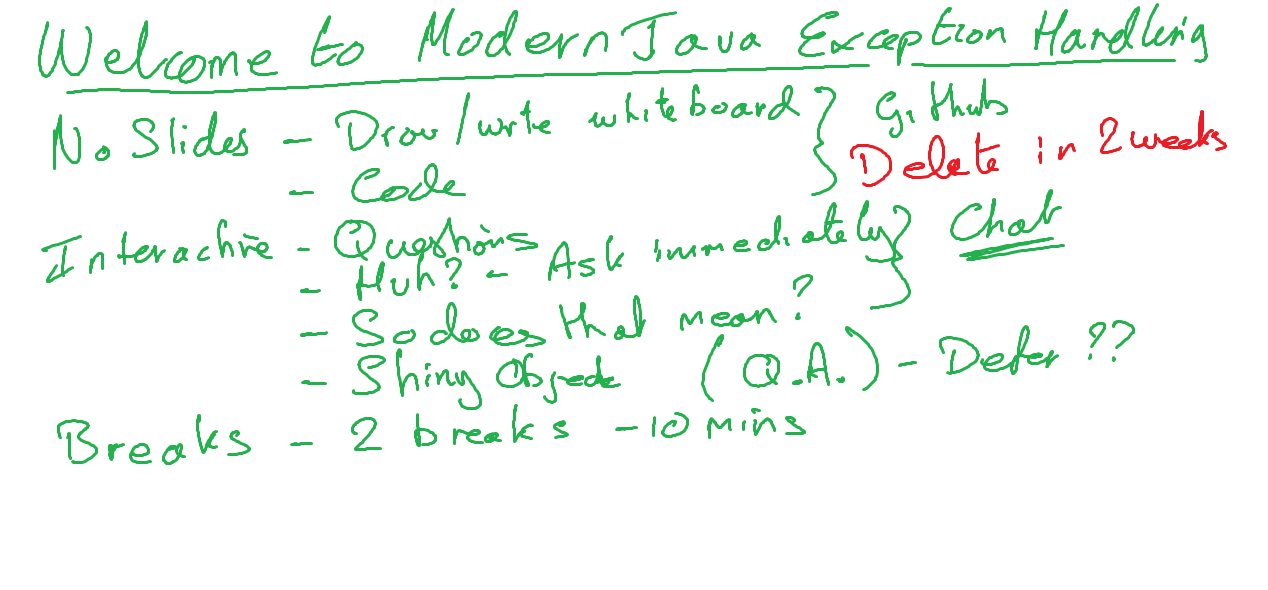 Welcome to Modern Java Exception Handling
No Slides - Draw/write whiteboard } Github
Delete in 2 weeks
- Code
Interactive - Questions
- Huh? - Ask immediately } Chat
- So does that mean?
- Shiny Objects (Q.A.) - Defer ??
Breaks - 2 breaks - 10 mins